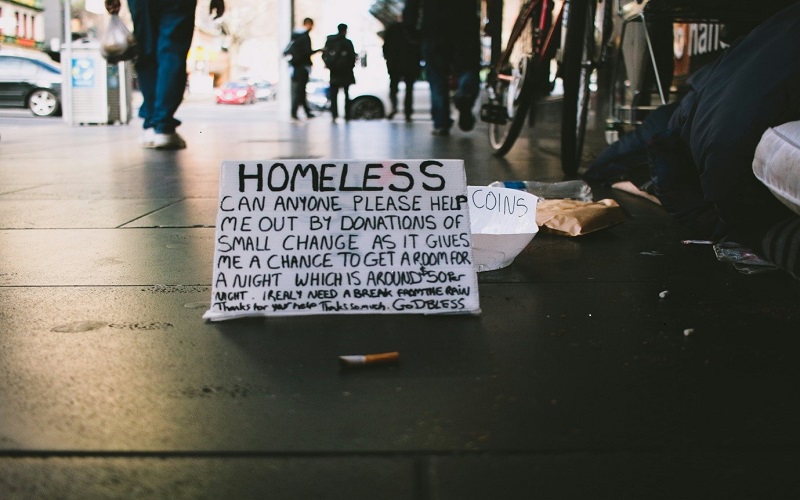 HOMELESS
CAN ANYONE PLEASE HELP
ME OUT BY DONATIONS OF
SMALL CHANGE AS IT GIVES
ME A CHANCE TO GET A ROOM FOR
A NIGHT WHICH IS AROUND $50 Per
NIGHT. I REALY NEED A BREAK FROM THE RAIN
Thanks for your help Thanks so much. GOD BLESS
COINS